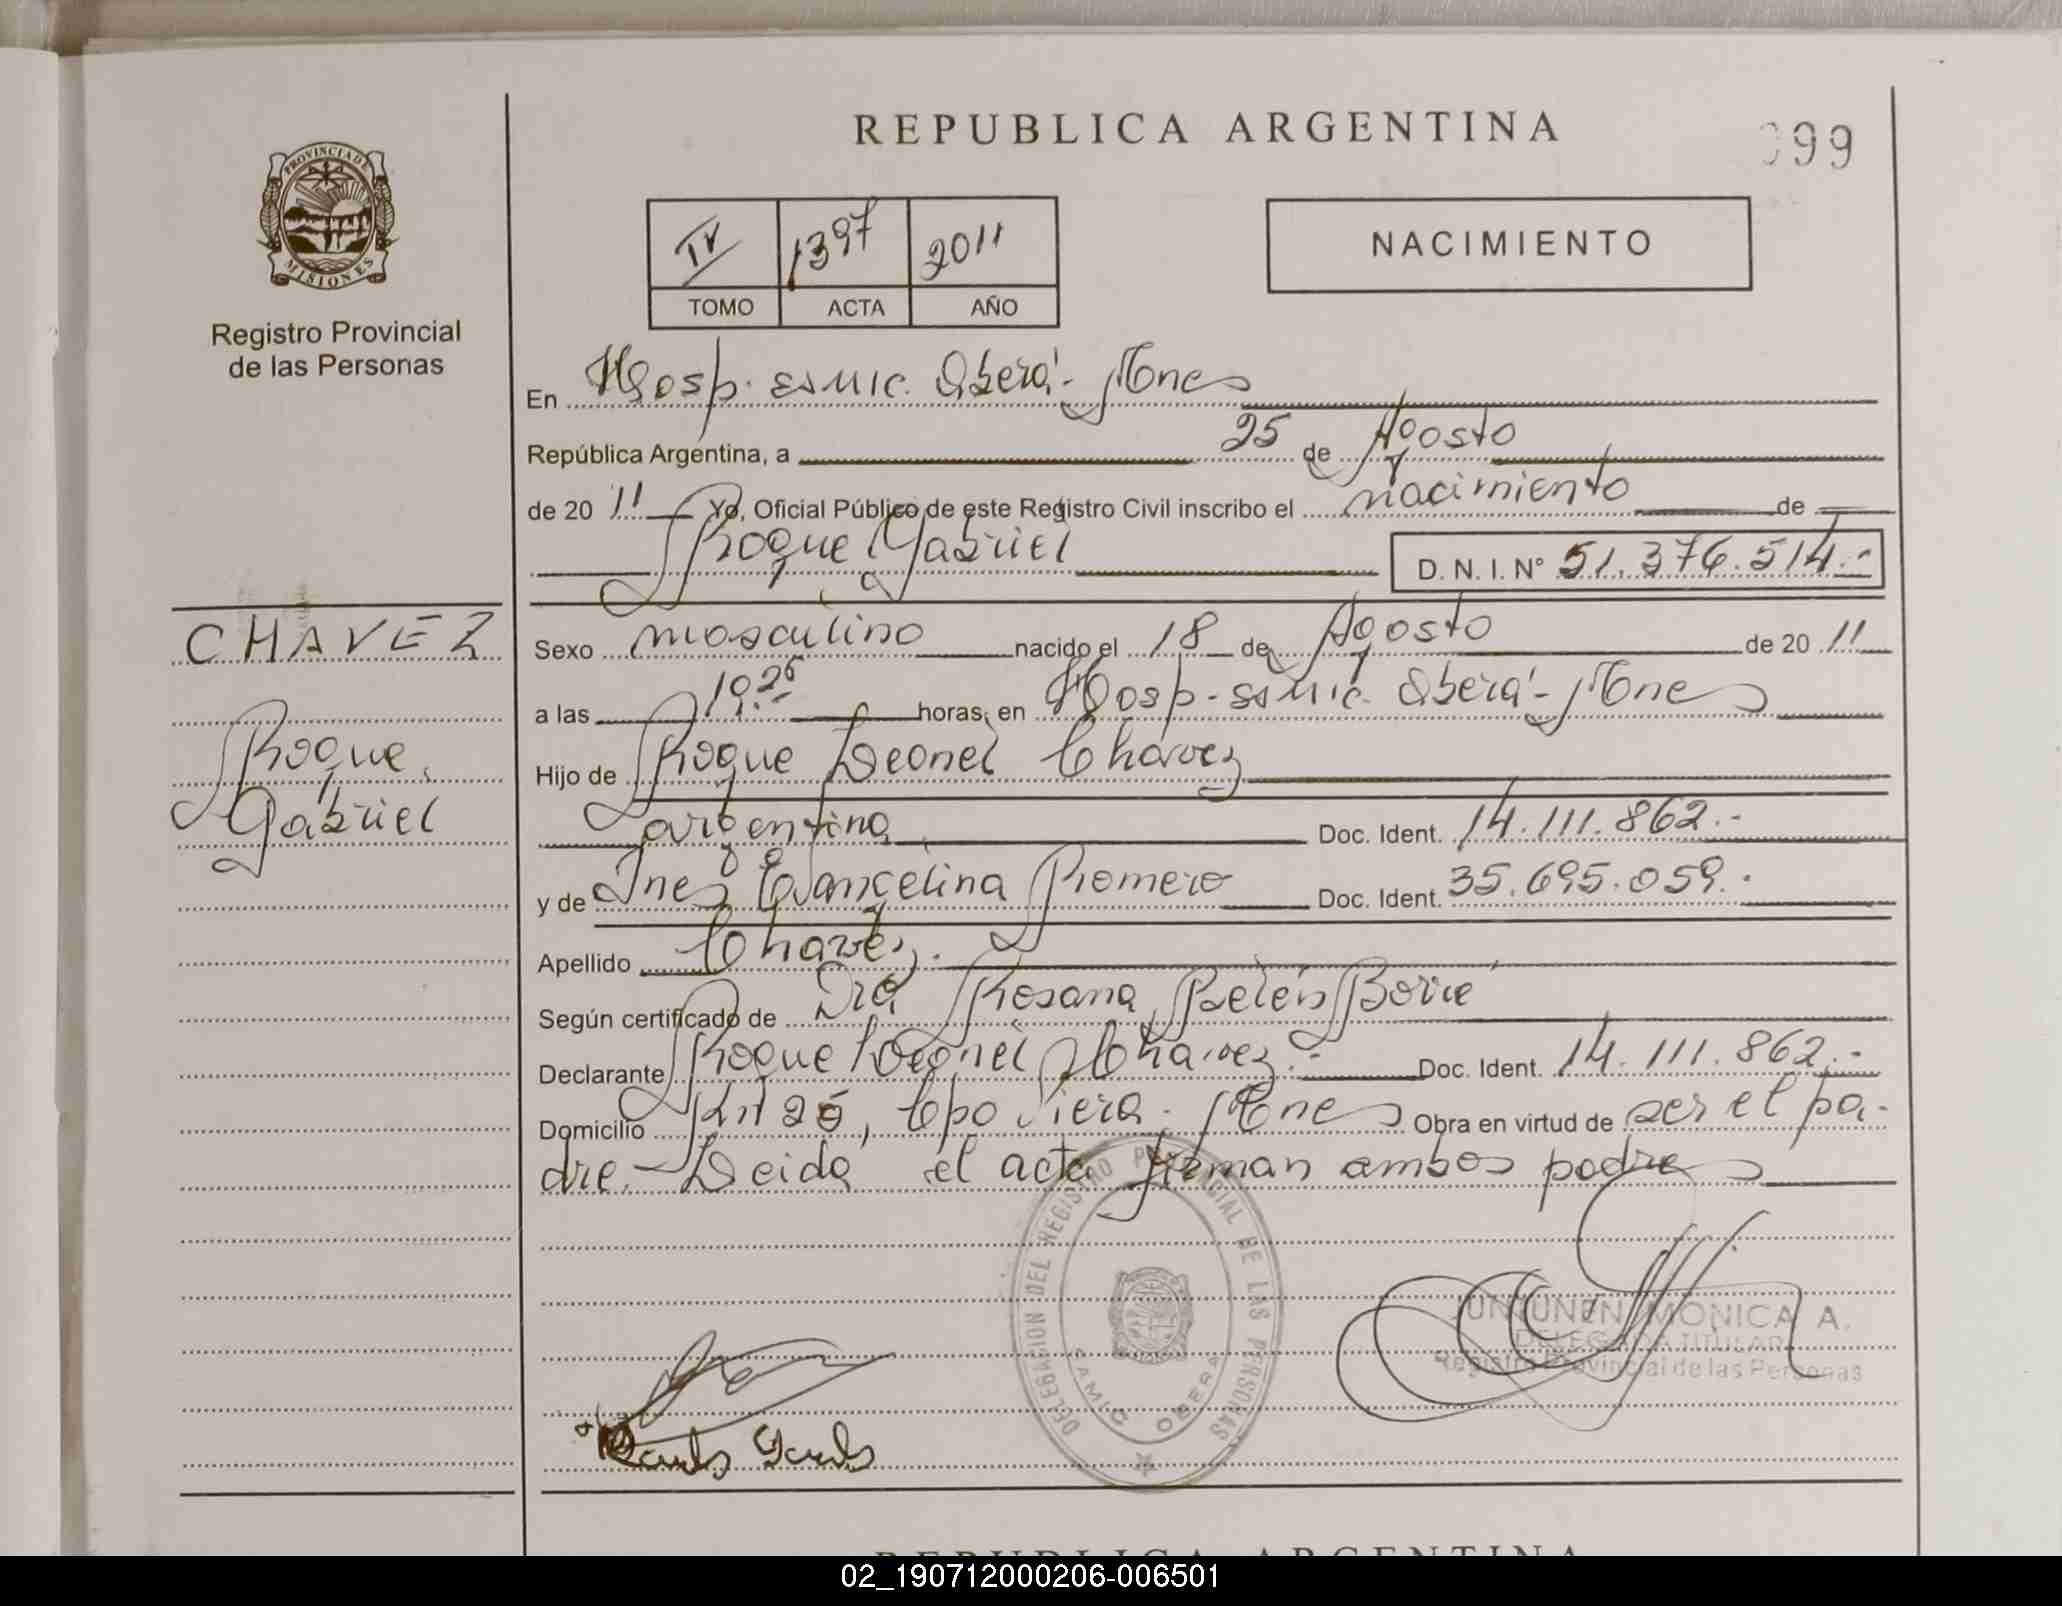 REPUBLICA ARGENTINA
99
PROVINCIA DE
MISIONES
Registro Provincial
de las Personas
IV 1397 2011
TOMO ACTA AÑO
NACIMIENTO
En Hosp. Samic. Oberá - Mnes
República Argentina, a 25 de Agosto
de 20 11 Yo, Oficial Público de este Registro Civil inscribo el nacimiento de
Roque Gabriel D. N. I. N° 51.376.514.-
CHAVEZ
Roque
Gabriel
Sexo masculino nacido el 18 de Agosto de 20 11
a las 19.26 horas, en Hosp - Samic. Oberá - Mnes
Hijo de Roque Leonel Chavez
argentina Doc. Ident. 14.111.862.-
y de Ines Evangelina Romero Doc. Ident. 35.695.059.-
Apellido Chavez.
Según certificado de Dra Rosana Belén
Declarante Roque Leonel Chavez.- Doc. Ident. 14.111.862.-
Domicilio Km 25, Cpo Viera - Mnes Obra en virtud de ser el pa-
dre.- Leida el acta firman ambos padres
DELEGACION DEL REGISTRO PROVINCIAL DE LAS PERSONAS
SAMIC OBERA
MONICA A.
DELEGADA TITULAR
Registro Provincial de las Personas
REPUBLICA ARGENTINA
02_190712000206-006501